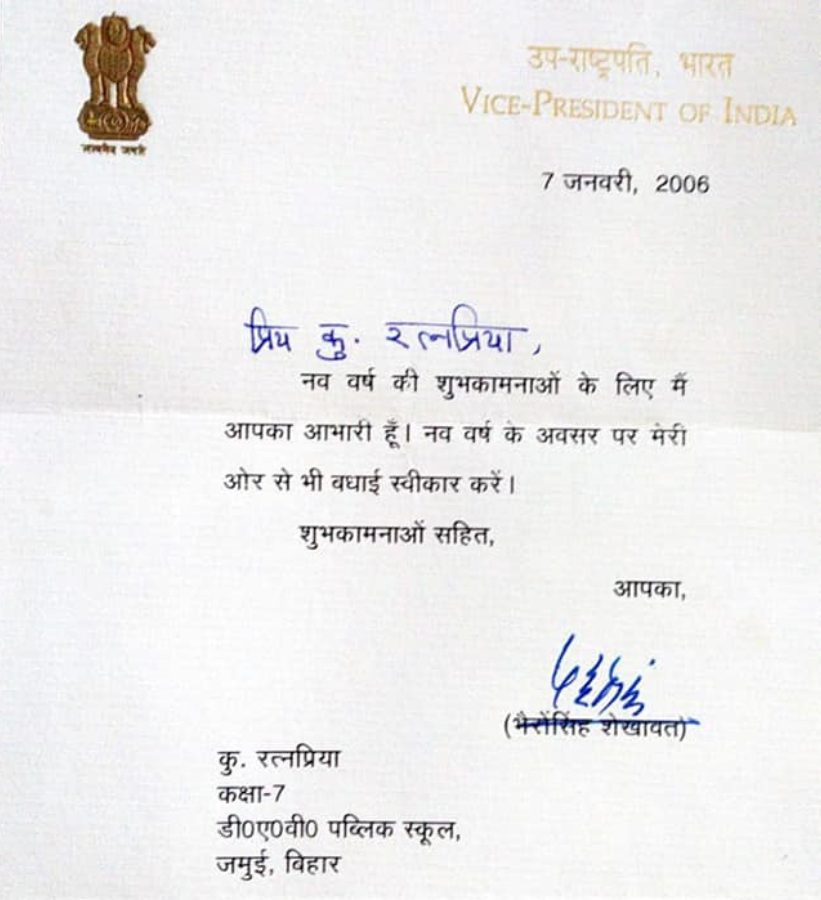 सत्यमेव जयते
उप-राष्ट्रपति, भारत
VICE-PRESIDENT OF INDIA
7 जनवरी, 2006
प्रिय कु. रत्नप्रिया,
नव वर्ष की शुभकामनाओं के लिए मैं
आपका आभारी हूँ। नव वर्ष के अवसर पर मेरी
ओर से भी बधाई स्वीकार करें।
शुभकामनाओं सहित,
आपका,
(भैरोंसिंह शेखावत)
कु. रत्नप्रिया
कक्षा-7
डी0ए0वी0 पब्लिक स्कूल,
जमुई, बिहार